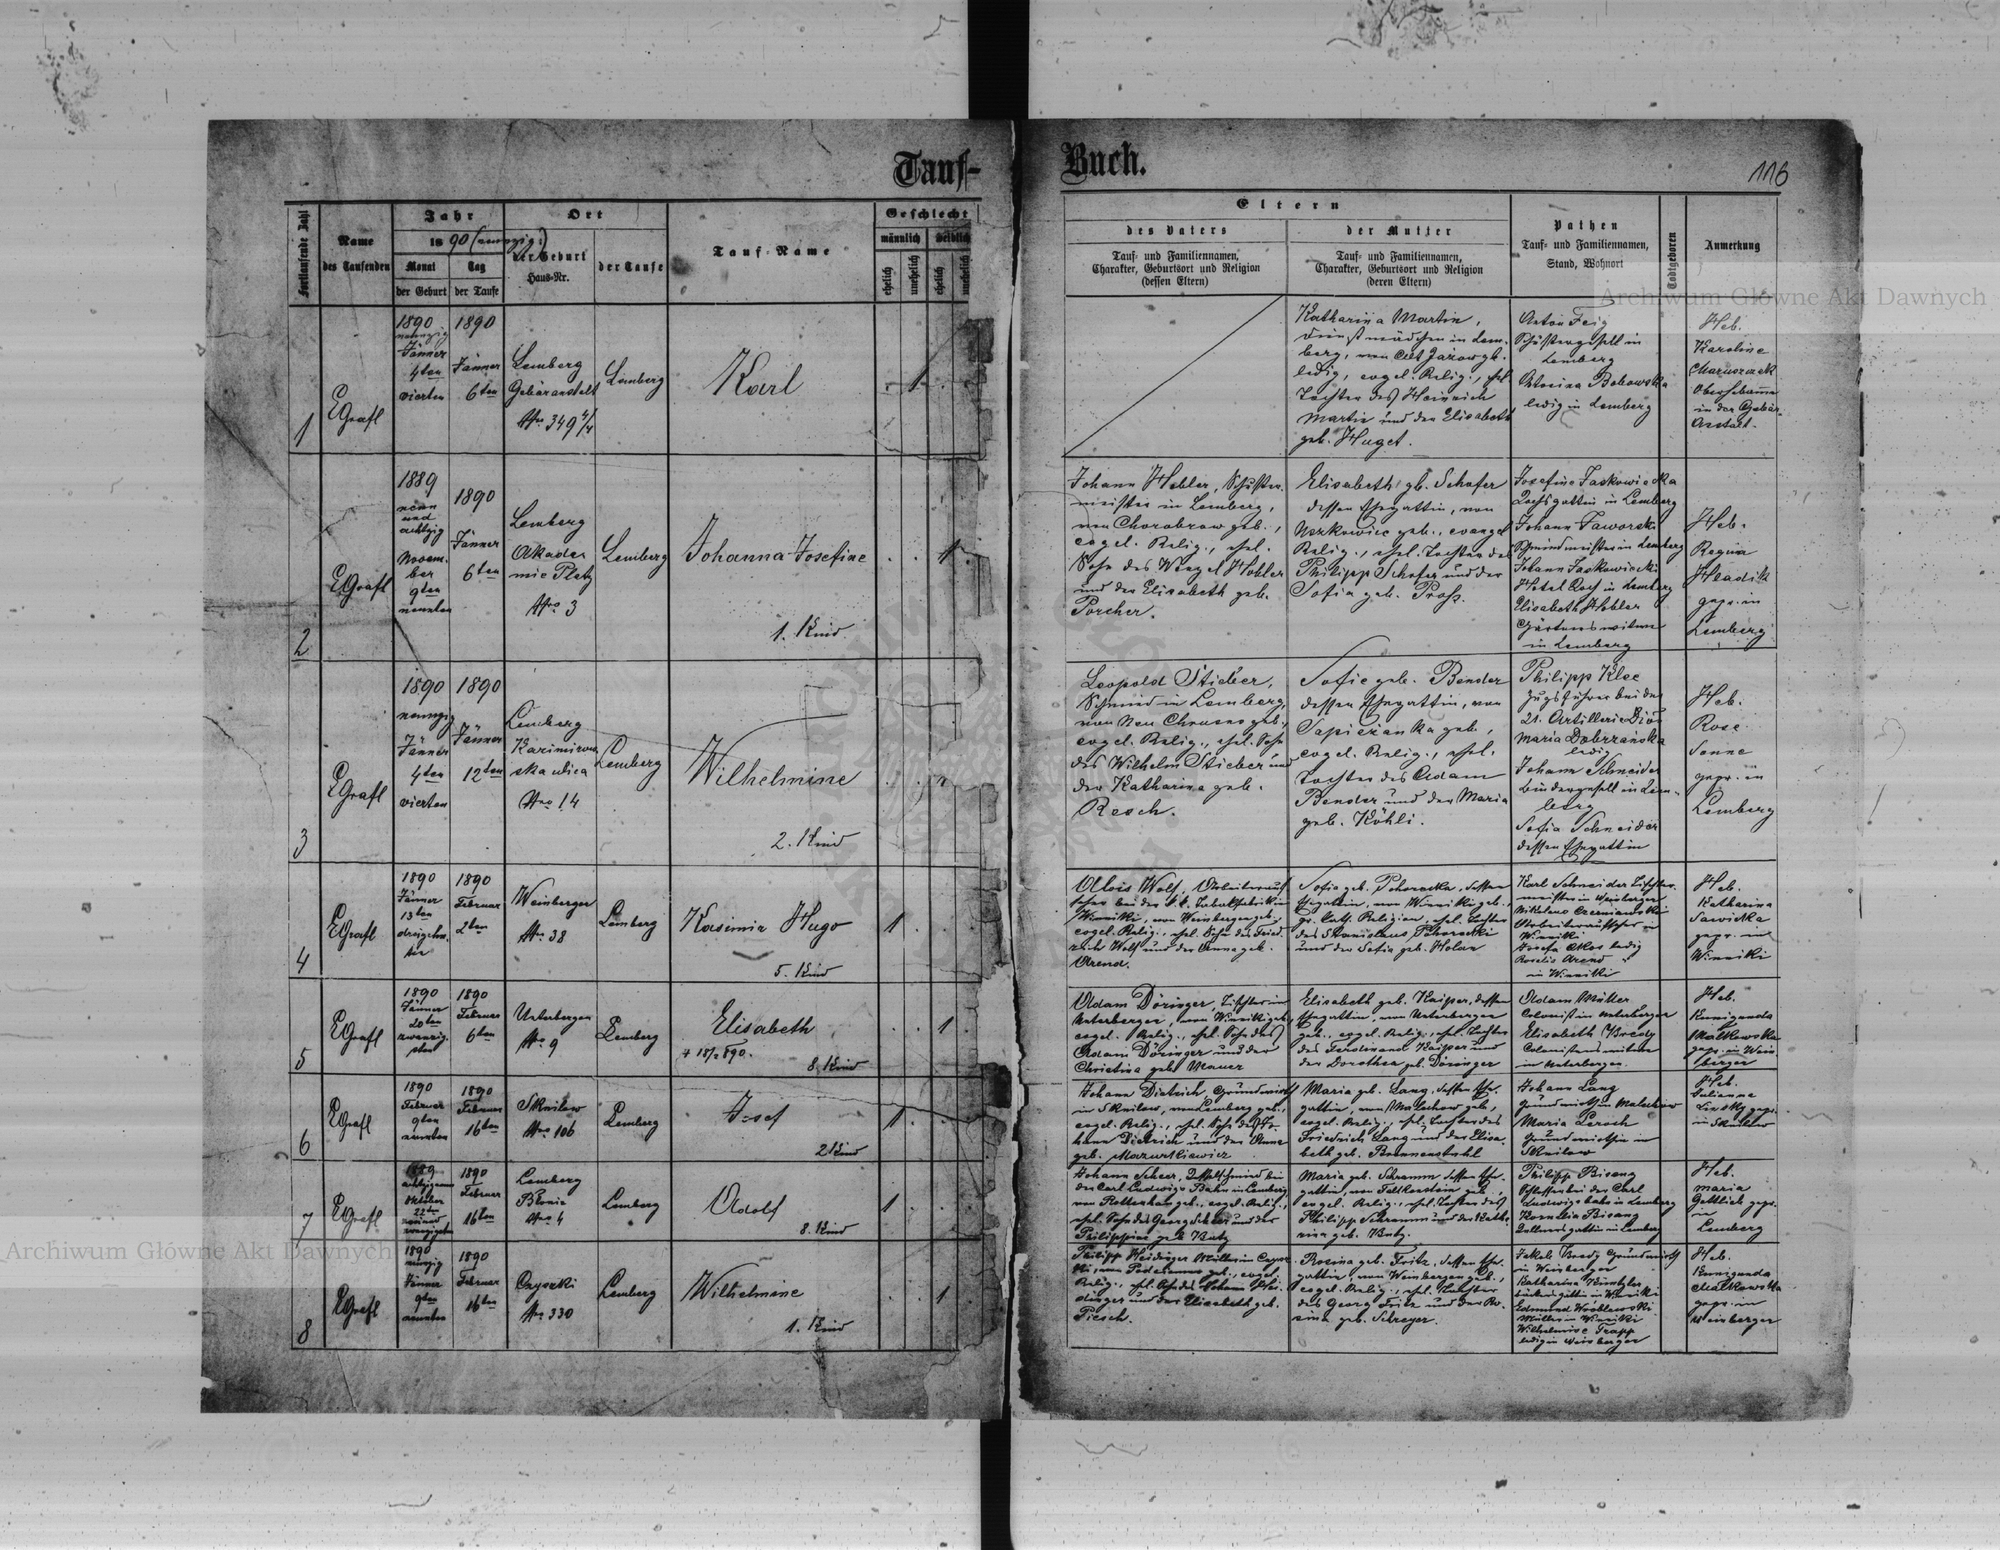 Tauf-
Buch.
116
Fortlaufende Zahl
Name
des Taufenden
Jahr
1890 (neunzig)
Monat
der Geburt
Tag
der Taufe
Ort
der Geburt
Haus-Nr.
der Taufe
Tauf-Name
Geschlecht
männlich
weiblich
ehelich
unehelich
ehelich
unehelich
Eltern
des Vaters
Tauf- und Familiennamen,
Charakter, Geburtsort und Religion
(dessen Eltern)
der Mutter
Tauf- und Familiennamen,
Charakter, Geburtsort und Religion
(deren Eltern)
Pathen
Tauf- und Familiennamen,
Stand, Wohnort
Todtgeboren
Anmerkung
1
EGrafl
1890
neunzig
Jänner
4ten
vierten
1890
Jänner
6ten
Lemberg
Gebäranstalt
Nro 349 4/4
Lemberg
Karl
1
Katharina Martin,
Dienstmädchen in Lem-
berg, von
ledig, evgel. Relig., ehel.
Tochter des Heinrich
Martin und der Elisabeth
geb. Huget.
Anton Feig
Schustergesell in
Lemberg
Antonina Bobowska
ledig in Lemberg
Heb.
Karoline
Oberhebamme
in der Gebär-
Anstalt.
2
EGrafl
1889
neun
und
achtzig
Novem-
ber
9ten
neunten
1890
Jänner
6ten
Lemberg
Akade-
mie Platz
Nro 3
Lemberg
Johanna Josefine
1. Kind
1
Johann Hebler, Schuster-
meister in Lemberg,
von Chorobrow geb.,
evgel. Relig., ehel.
Sohn des Wenzel Hebler
und der Elisabeth geb.
Porcher.
Elisabeth gb. Schafer
dessen Ehegattin, von
geb., evangel.
Relig., ehel. Tochter des
Philipp Schafer und der
Sofia geb. Pross.
Josefine Jaskowiecka
in Lemberg
Johann Jaworski
in Lemberg
Johann Jaskowiecki
Hotel Koch in Lemberg
Elisabeth Hebler
Gärtnerswitwe
in Lemberg
Heb.
Regina
Hladik
gepr. in
Lemberg
3
EGrafl
1890
neunzig
Jänner
4ten
vierten
1890
Jänner
12ten
Lemberg
Kazimirow-
ska ulica
Nro 14
Lemberg
Wilhelmine
2. Kind
Leopold Stieber,
Schmied in Lemberg,
von Neu Chrusno geb.,
evgel. Relig., ehel. Sohn
des Wilhelm Stieber und
der Katharina geb.
Resch.
Sofie geb. Bender
dessen Ehegattin, von
Sapiezanka geb.,
evgel. Relig., ehel.
Tochter des Adam
Bender und der Maria
geb. Köhli.
Philipp Klee
Zugsführer bei der
21. Artillerie Divis
Maria Dobrzańska
ledig
Johann Schneider
Bindergesell in Lem-
berg
Sofia Schneider
dessen Ehegattin
Heb.
Rose
Sonne
gepr. in
Lemberg
4
EGrafl
1890
Jänner
13ten
dreizehn-
ten
1890
Februar
2ten
Weinbergen
Nro 38
Lemberg
Kasimir Hugo
5. Kind
1
Alois Wolf, Arbeiterauf-
seher bei der k.k. Tabakfabrik in
Winniki, von Weinbergen geb.,
evgel. Relig., ehel. Sohn des Fried-
rich Wolf und der Anna geb.
Arend.
Sofia geb. Pohorecka, dessen
Ehegattin, von Winniki geb.,
gr. kath. Religion, ehel. Tochter
des Stanislaus Pohorecki
und der Sofia geb. Holan
Karl Schneider Tischler-
meister in Weinbergen
Nikolaus Czerniawski
Arbeiteraufseher in
Winniki
Rosalie Arend
in Winniki
Heb.
Katharina
Sawicka
gepr. in
Winniki
5
EGrafl
1890
Jänner
20ten
zwanzig-
sten
1890
Februar
6ten
Unterbergen
Nro 9
Lemberg
Elisabeth
8. Kind
1
Adam Döringer, Tischler in
Unterbergen, von Winniki geb.,
evgel. Relig., ehel. Sohn des
Adam Döringer und der
Christina geb. Mauer
Elisabeth geb. Kaiper, dessen
Ehegattin, von Unterbergen
geb., evgel. Relig., ehel. Tochter
des Ferdinand Kaiper und
der Dorothea geb. Döringer
Adam Müller
Colonist in Unterbergen
Elisabeth Bredy
Colonistenswitwe
in Unterbergen.
Heb.
Kunigunda
Malkowska
gepr. in Wein-
bergen
6
EGrafl
1890
Februar
9ten
neunten
1890
Februar
16ten
Skniłow
Nro 106
Lemberg
Josef
2 Kind
1
Johann Dietrich, Grundwirth
in Skniłow, von Lemberg geb.,
evgel. Relig., ehel. Sohn des Jo-
hann Dietrich und der Anna
geb. Mazurkiewicz
Maria geb. Lang, dessen Ehe-
gattin, von Malechow geb.,
evgel. Relig., ehel. Tochter des
Friedrich Lang und der Elisa-
beth geb. Bonnenstahl
Johann Lang
Grundwirth in Malechow
Maria Lerach
Grundwirthin in
Skniłow
Heb.
Julianne
in Skniłow
7
EGrafl
1889
Oktober
22ten
1890
Februar
16ten
Lemberg
Błonie
Nro 4
Lemberg
Adolf
8. Kind
1
Johann Scheer, bei
der Carl Ludwigs Bahn in Lemberg
von Rottenhan geb., evgel. Relig.,
ehel. Sohn des Georg Scheer und der
Philippine geb. Butz
Maria geb. Schramm dessen Ehe-
gattin, von Falkenstein geb.,
evgel. Relig., ehel. Tochter des
Philipp Schramm und der Katha-
rina geb. Butz.
Philipp Bisanz
Schlosser bei der Carl
Ludwigsbahn in Lemberg
Kornelia Bisanz
in Lemberg
Heb.
Maria
Gottlieb gepr.
in
Lemberg
8
EGrafl
1890
neunzig
Jänner
9ten
neunten
1890
Februar
16ten
Czyszki
Nro 330
Lemberg
Wilhelmine
1. Kind
1
Philipp Heidinger Müller in Czysz-
ki, von geb., evgel.
Relig., ehel. Sohn des Johann Hei-
dinger und der Elisabeth geb.
Piesch.
Rosina geb. Fritz, dessen Ehe-
gattin, von Weinbergen geb.,
evgel. Relig., ehel. Tochter
des Georg Fritz und der Ro-
sina geb. Schreyer.
Jakob Bredy Grundwirth
in Weinbergen
Katharina Küntzler
in Winniki
Edmund Wróblewski
Müller in Winniki
Wilhelmine Trapp
ledig in Weinbergen
Heb.
Kunigunda
Malkowska
gepr. in
Weinbergen
Archiwum Główne Akt Dawnych
Archiwum Główne Akt Dawnych